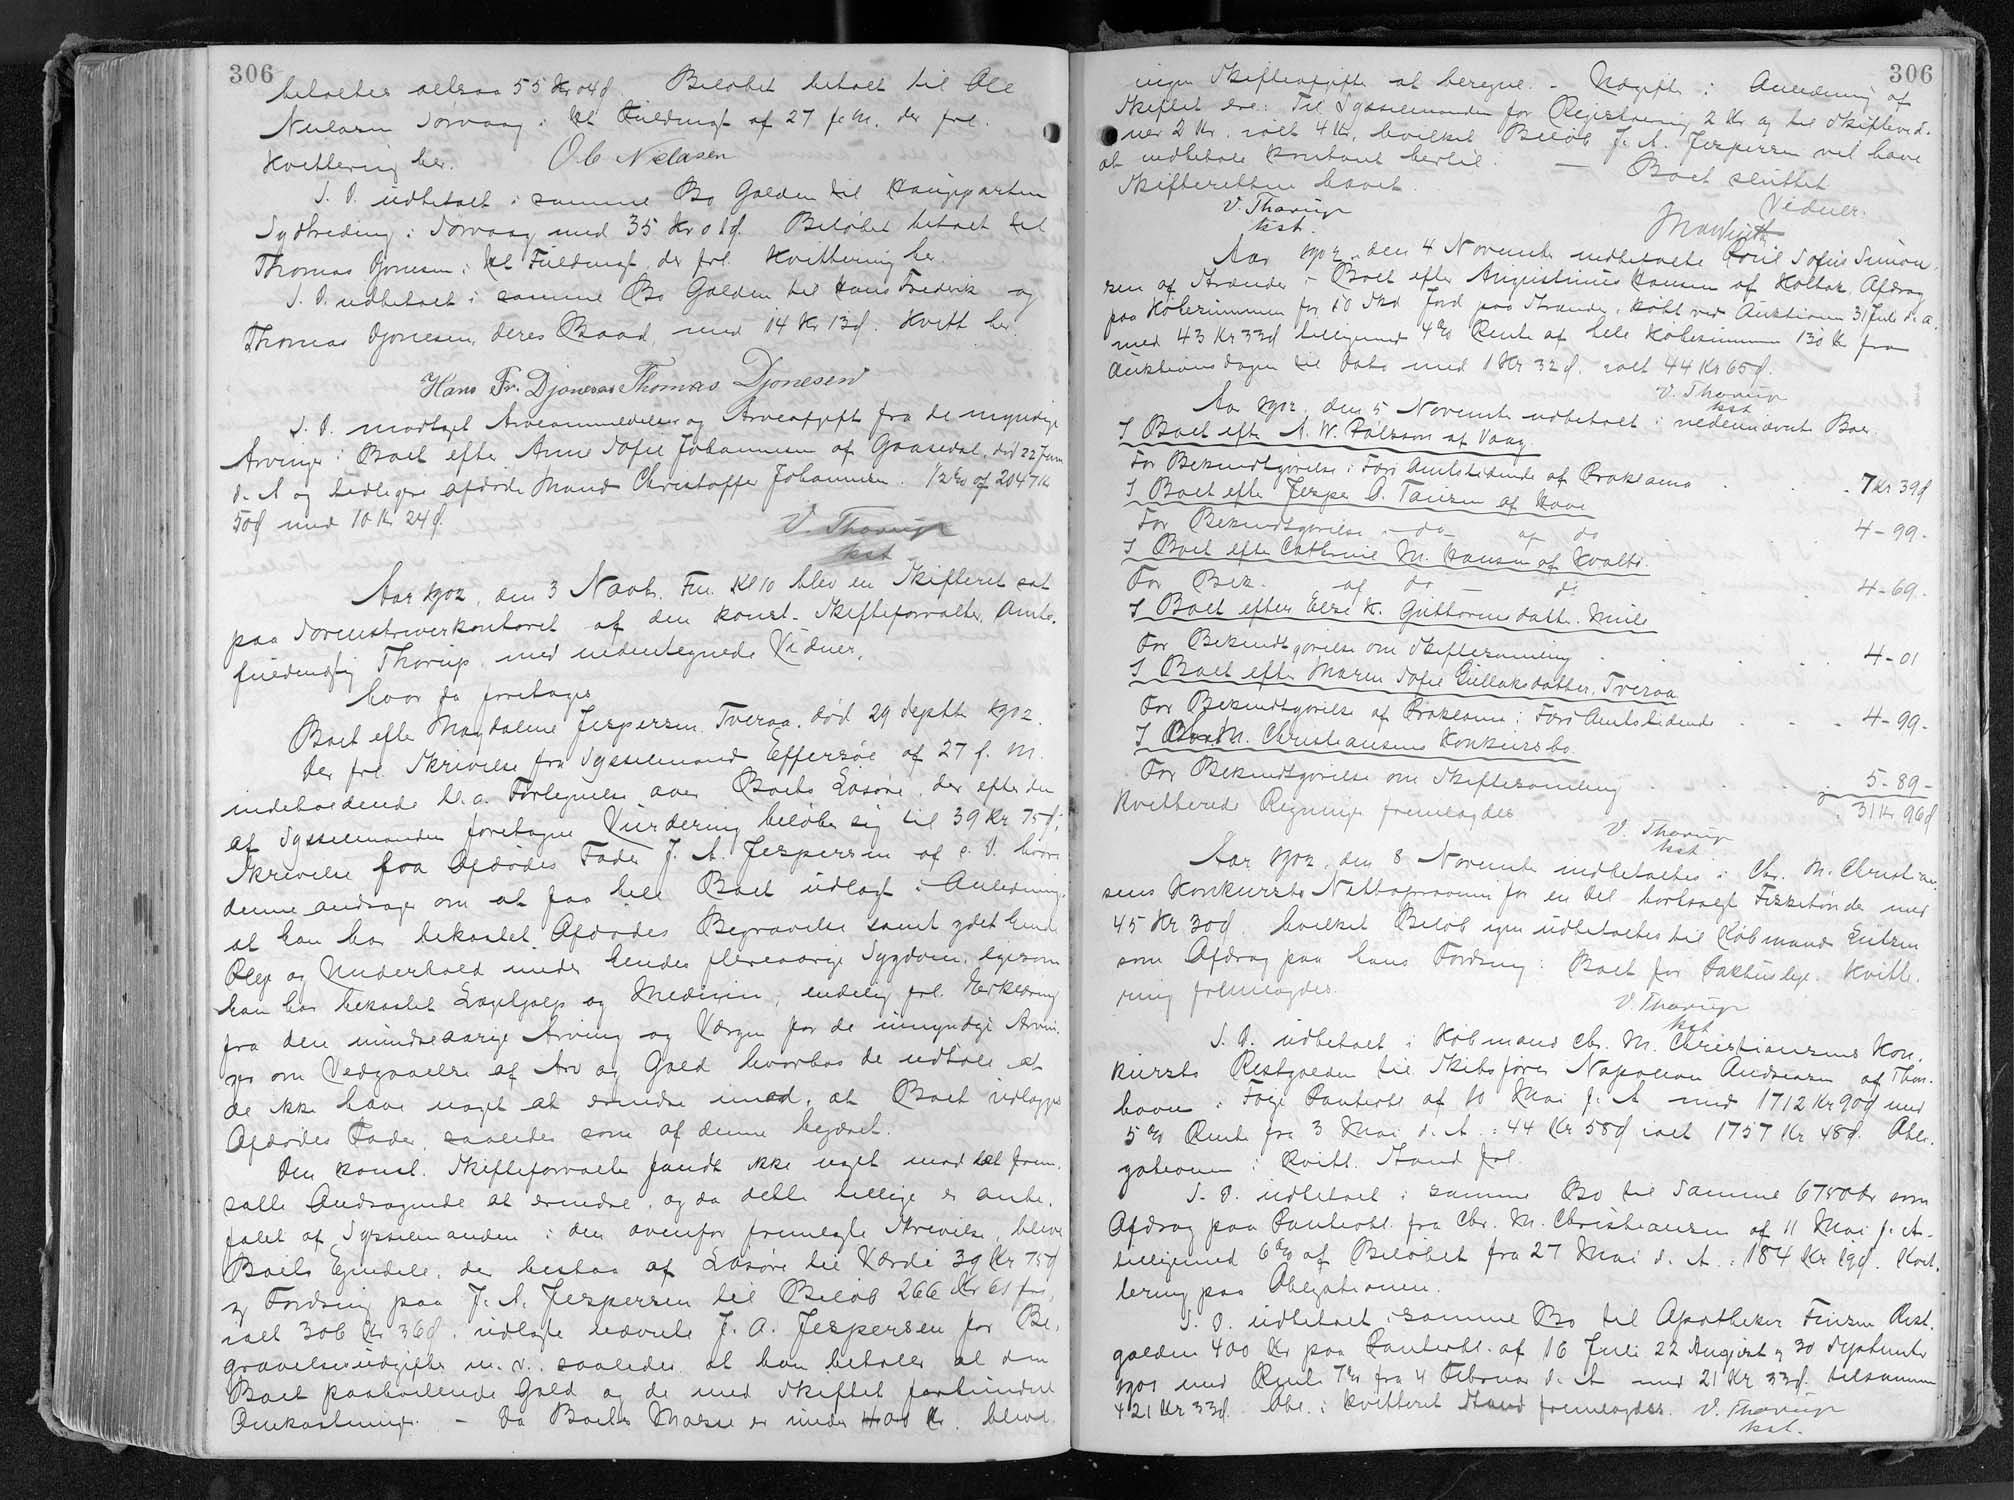 306
betaltes altsaa 55 Kr 04 d. Beløbet betalt til Ole
Nielasen Sørvaag i Kt Fuldmagt af 27 f. M. der frl.
Kvittering her. Ole Nielasen
S. D. udbetalt i samme Bo Gælden til Haugparten
Sydtreding i Sørvaag med 35 Kr 01 d. Beløbet betalt til
Thomas Djonesen i Kt Fuldmagt, der frl. Kvittering her.
S. D. udbetalt i samme Bo Gælden til Hans Frederik og
Thomas Djonesen, deres Baad, med 14 Kr 13 d. Kvitt her.
Hans Fr. Djonesen Thomas Djonesen
S. D. modtaget Arveanmeldelse og Arveafgift fra de myndige
Arvinger i Boet efter Anne Sofie Johannesen af Gaasedal, død 22 Juni
d. A og tidligere afdøde Mand Christoffer Johannesen. 1/2 % af 2047 Kr
50 d med 10 Kr 24 d.
V. Thorup
kst
Aar 1902, den 3 Novb. Fm. Kl 10 blev en Skifteret sat
paa Sorenskriverkontoret af den konst. Skifteforvalter, Amts-
fuldmægtig Thorup med undertegnede Vidner,
hvor da foretoges
Boet efter Magdalene Jespersen Tveraa, død 29 Septb 1902.
Der frl. Skrivelse fra Sysselmand Effersøe af 27 f. M.
indeholdende bl. a. Fortegnelse over Boets Løsøre, der efter den
af Sysselmanden foretagne Vurdering beløber sig til 39 Kr 75 d;
Skrivelse fra Afdødes Fader J. A. Jespersen af s. D. hvori
denne andrager om at faa hele Boet udlagt i Anledning
at han har bekostet Afdødes Begravelse samt ydet hende
Pleje og Underhold under hendes fleraarige Sygdom, ligesom
han har bekostet Lægehjælp og Medicin, endelig frl. Erklæring
fra den mindreaarige Arving og Værgen for de umyndige Arvin-
ger om Vedgaaelse af Arv og Gæld hvorhos de udtale at
de ikke have noget at erindre imod, at Boet udlægges
Afdødes Fader, saaledes som af denne begæret.
Den konst. Skifteforvalter fandt ikke noget mod det frem-
satte Andragende at erindre, og da dette tillige er anbe-
falet af Sysselmanden i den ovenfor fremlagte Skrivelse, bleve
Boets Ejendele, der bestaa af Løsøre til Værdi 39 Kr 75 d
og Fordring paa J. A. Jespersen til Beløb 266 Kr 61 d,
ialt 306 Kr 36 d, udlagte nævnte J. A. Jespersen for Be-
gravelsesudgifter m. v. saaledes at han betaler al den
Boet paahvilende Gæld og de med Skiftet forbundne
Omkostninger. - Da Boets Masse er under 400 Kr. bliver
306
ingen Skifteafgift at beregne. - Udgifter i Anledning af
Skiftet ere: Til Sysselmanden for Registrering 2 Kr og til Skiftevid-
ner 2 Kr, ialt 4 Kr, hvilket Beløb J. A. Jespersen vil have
at indbetale kontant hertil. - Boet sluttet.
Skifteretten hævet.
V. Thorup
kst.
Vidner:
Aar 1902, den 4 November indbetalte Poul Sofus Simon-
sen af Strænder i Boet efter Augustinus Hansen af Holtar, Afdrag
paa Købesummen for 10 Skd Jord paa Strænder, købt ved Auktionen 31 Juli d. a.
med 43 Kr 33 d tilligemed 4 % Rente af hele Købesummen 130 Kr fra
Auktionsdagen til Dato med 1 Kr 32 d, ialt 44 Kr 65 d.
V. Thorup
kst
Aar 1902, den 5 November udbetalt i nedennævnte Boer.
I Boet efter A. W. Palsson af Vaag
For Bekendtgørelse i Færø Amtstidende af Proklama . . . 7 Kr 39 d
I Boet efter Jesper D. Tausen af Hove
For Bekendtgørelse - do - af do . . 4 - 99 -
I Boet efter Cathrine M. Hansen af Hvalbø.
For Bek. af do - do . . 4 - 69 -
I Boet efter Else K. Guttormsdatter. Mule
For Bekendtgørelse om Skiftesamling . . . 4 - 01
I Boet efter Maren Sofie Gullaksdatter, Tveraa
For Bekendtgørelse af Proklama i Færø Amtstidende . . . 4 - 99 -
I Chr. M. Christiansens Konkursbo
For Bekendtgørelse om Skiftesamling . . . 5 - 89 -
Kvitterede Regninger fremlagdes 31 Kr 96 d
V. Thorup
kst
Aar 1902, den 8 November indbetaltes i Chr. M. Christian-
sens Konkursbo Nettoprovenu for en Del bortsolgt Fisketønder med
45 Kr 30 d, hvilket Beløb igen udbetaltes til Købmand
som Afdrag paa hans Fordring i Boet for Pakhusleje. Kvitte-
ring fremlagdes.
V. Thorup
kst
S. D. udbetalt i Købmand Chr. M. Christiansens Kon-
kursbo Restgælden til Skibsfører Napoleon Andreasen af Thors-
havn i Følge Panteobl. af 10 Mai f. A. med 1712 Kr 90 d med
5 % Rente fra 3 Mai d. A.: 44 Kr 58 d ialt 1757 Kr 48 d. Obli-
gationen i kvitt. Stand frl.
S. D. udbetalt i samme Bo til Samme 6750 Kr som
Afdrag paa Panteobl. fra Chr. M. Christiansen af 11 Mai f. A.
tilligemed 6 % af Beløbet fra 27 Mai d. A.: 184 Kr 19 d. Kvit-
tering paa Obligationen.
S. D. udbetalt i samme Bo til Apotheker Finsen Rest-
gælden 400 Kr paa Panteobl. af 16 Juli 22 August og 30 September
1901 med Rente 7 % fra 4 Februar d. A med 21 Kr 33 d. tilsammen
421 Kr 33 d. Obl. i kvitteret Stand fremlagdes. V. Thorup
kst.